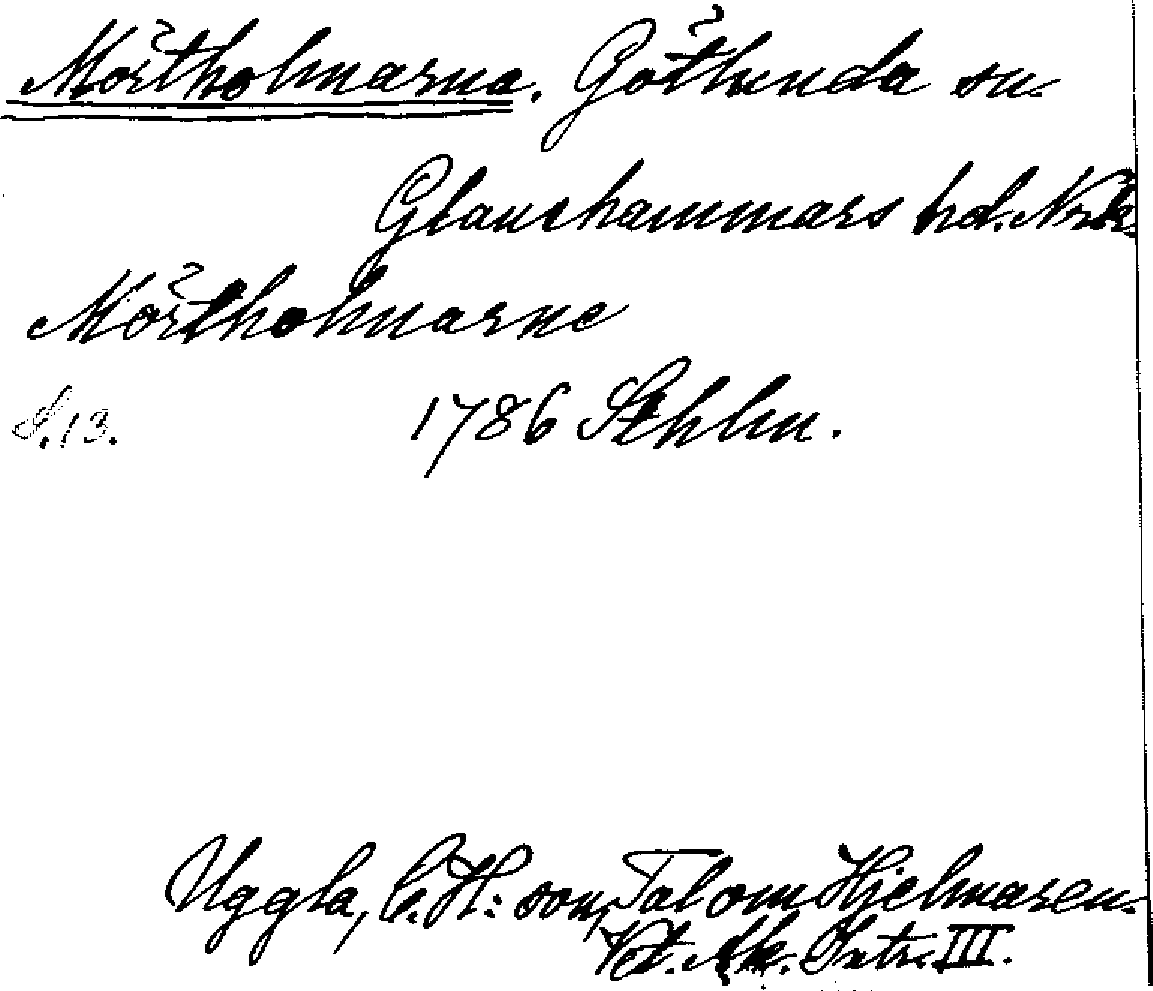 Mörtholmarna. Götlunda sn.
Glanshammars hd. Nrke.
Mörtholmarne
S. 13. 1786 Sthlm.
Uggla, C. H:son, Tal om Hjelmaren.
Vet. Ak. Intr. III.